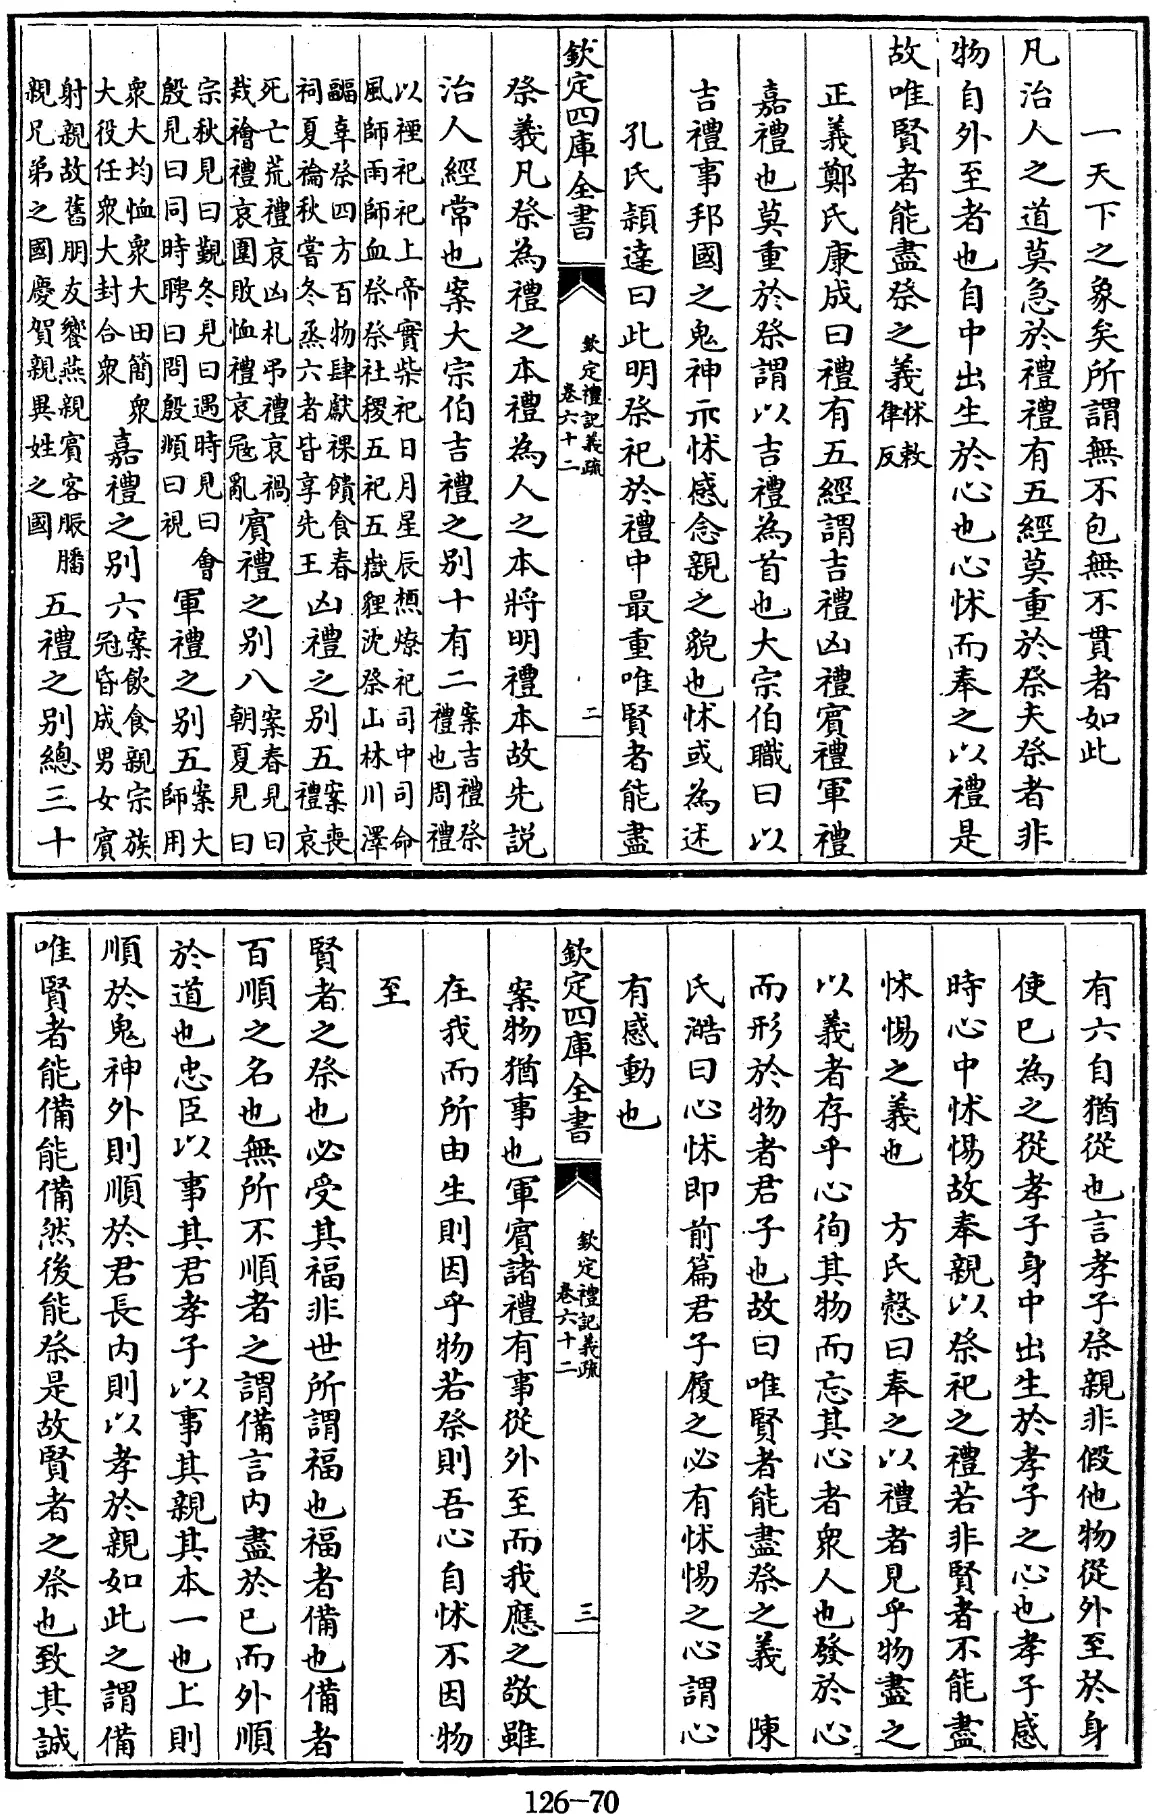 一天下之象矣所謂無不包無不貫者如此
凡治人之道莫急於禮禮有五經莫重於祭夫祭者非
物自外至者也自中出生於心也心怵而奉之以禮是
故唯賢者能盡祭之義怵敕律反
正義鄭氏康成曰禮有五經謂吉禮凶禮賓禮軍禮
嘉禮也莫重於祭謂以吉禮為首也大宗伯職曰以
吉禮事邦國之鬼神示怵感念親之貌也怵或為述
孔氏穎達曰此明祭祀於禮中最重唯賢者能盡
欽定四庫全書 欽定禮記義疏卷六十二 二
祭義凡祭為禮之本禮為人之本將明禮本故先説
治人經常也案大宗伯吉禮之别十有二案吉禮祭禮也周禮
以禋祀祀上帝實柴祀日月星辰槱燎祀司中司命
風師雨師血祭祭社稷五祀五嶽貍沈祭山林川澤
疈辜祭四方百物肆獻祼饋食春
祠夏禴秋嘗冬烝六者皆享先王凶禮之别五案喪禮哀
死亡荒禮哀凶札弔禮哀禍
烖禬禮哀圍敗恤禮哀冦亂賓禮之别八案春見曰朝夏見曰
宗秋見曰覲冬見曰遇時見曰會
殷見曰同時聘曰問殷頫曰視軍禮之别五案大師用
衆大均恤衆大田簡衆
大役任衆大封合衆嘉禮之别六案飲食親宗族冠昏成男女賓
射親故舊朋友饗燕親賓客脤膰
親兄弟之國慶賀親異姓之國五禮之别總三十
有六自猶從也言孝子祭親非假他物從外至於身
使已為之從孝子身中出生於孝子之心也孝子感
時心中怵惕故奉親以祭祀之禮若非賢者不能盡
怵惕之義也 方氏慤曰奉之以禮者見乎物盡之
以義者存乎心徇其物而忘其心者衆人也發於心
而形於物者君子也故曰唯賢者能盡祭之義 陳
氏澔曰心怵即前篇君子履之必有怵惕之心謂心
有感動也
欽定四庫全書 欽定禮記義疏卷六十二 三
案物猶事也軍賓諸禮有事從外至而我應之敬雖
在我而所由生則因乎物若祭則吾心自怵不因物
至
賢者之祭也必受其福非世所謂福也福者備也備者
百順之名也無所不順者之謂備言内盡於已而外順
於道也忠臣以事其君孝子以事其親其本一也上則
順於鬼神外則順於君長内則以孝於親如此之謂備
唯賢者能備能備然後能祭是故賢者之祭也致其誠
126-70